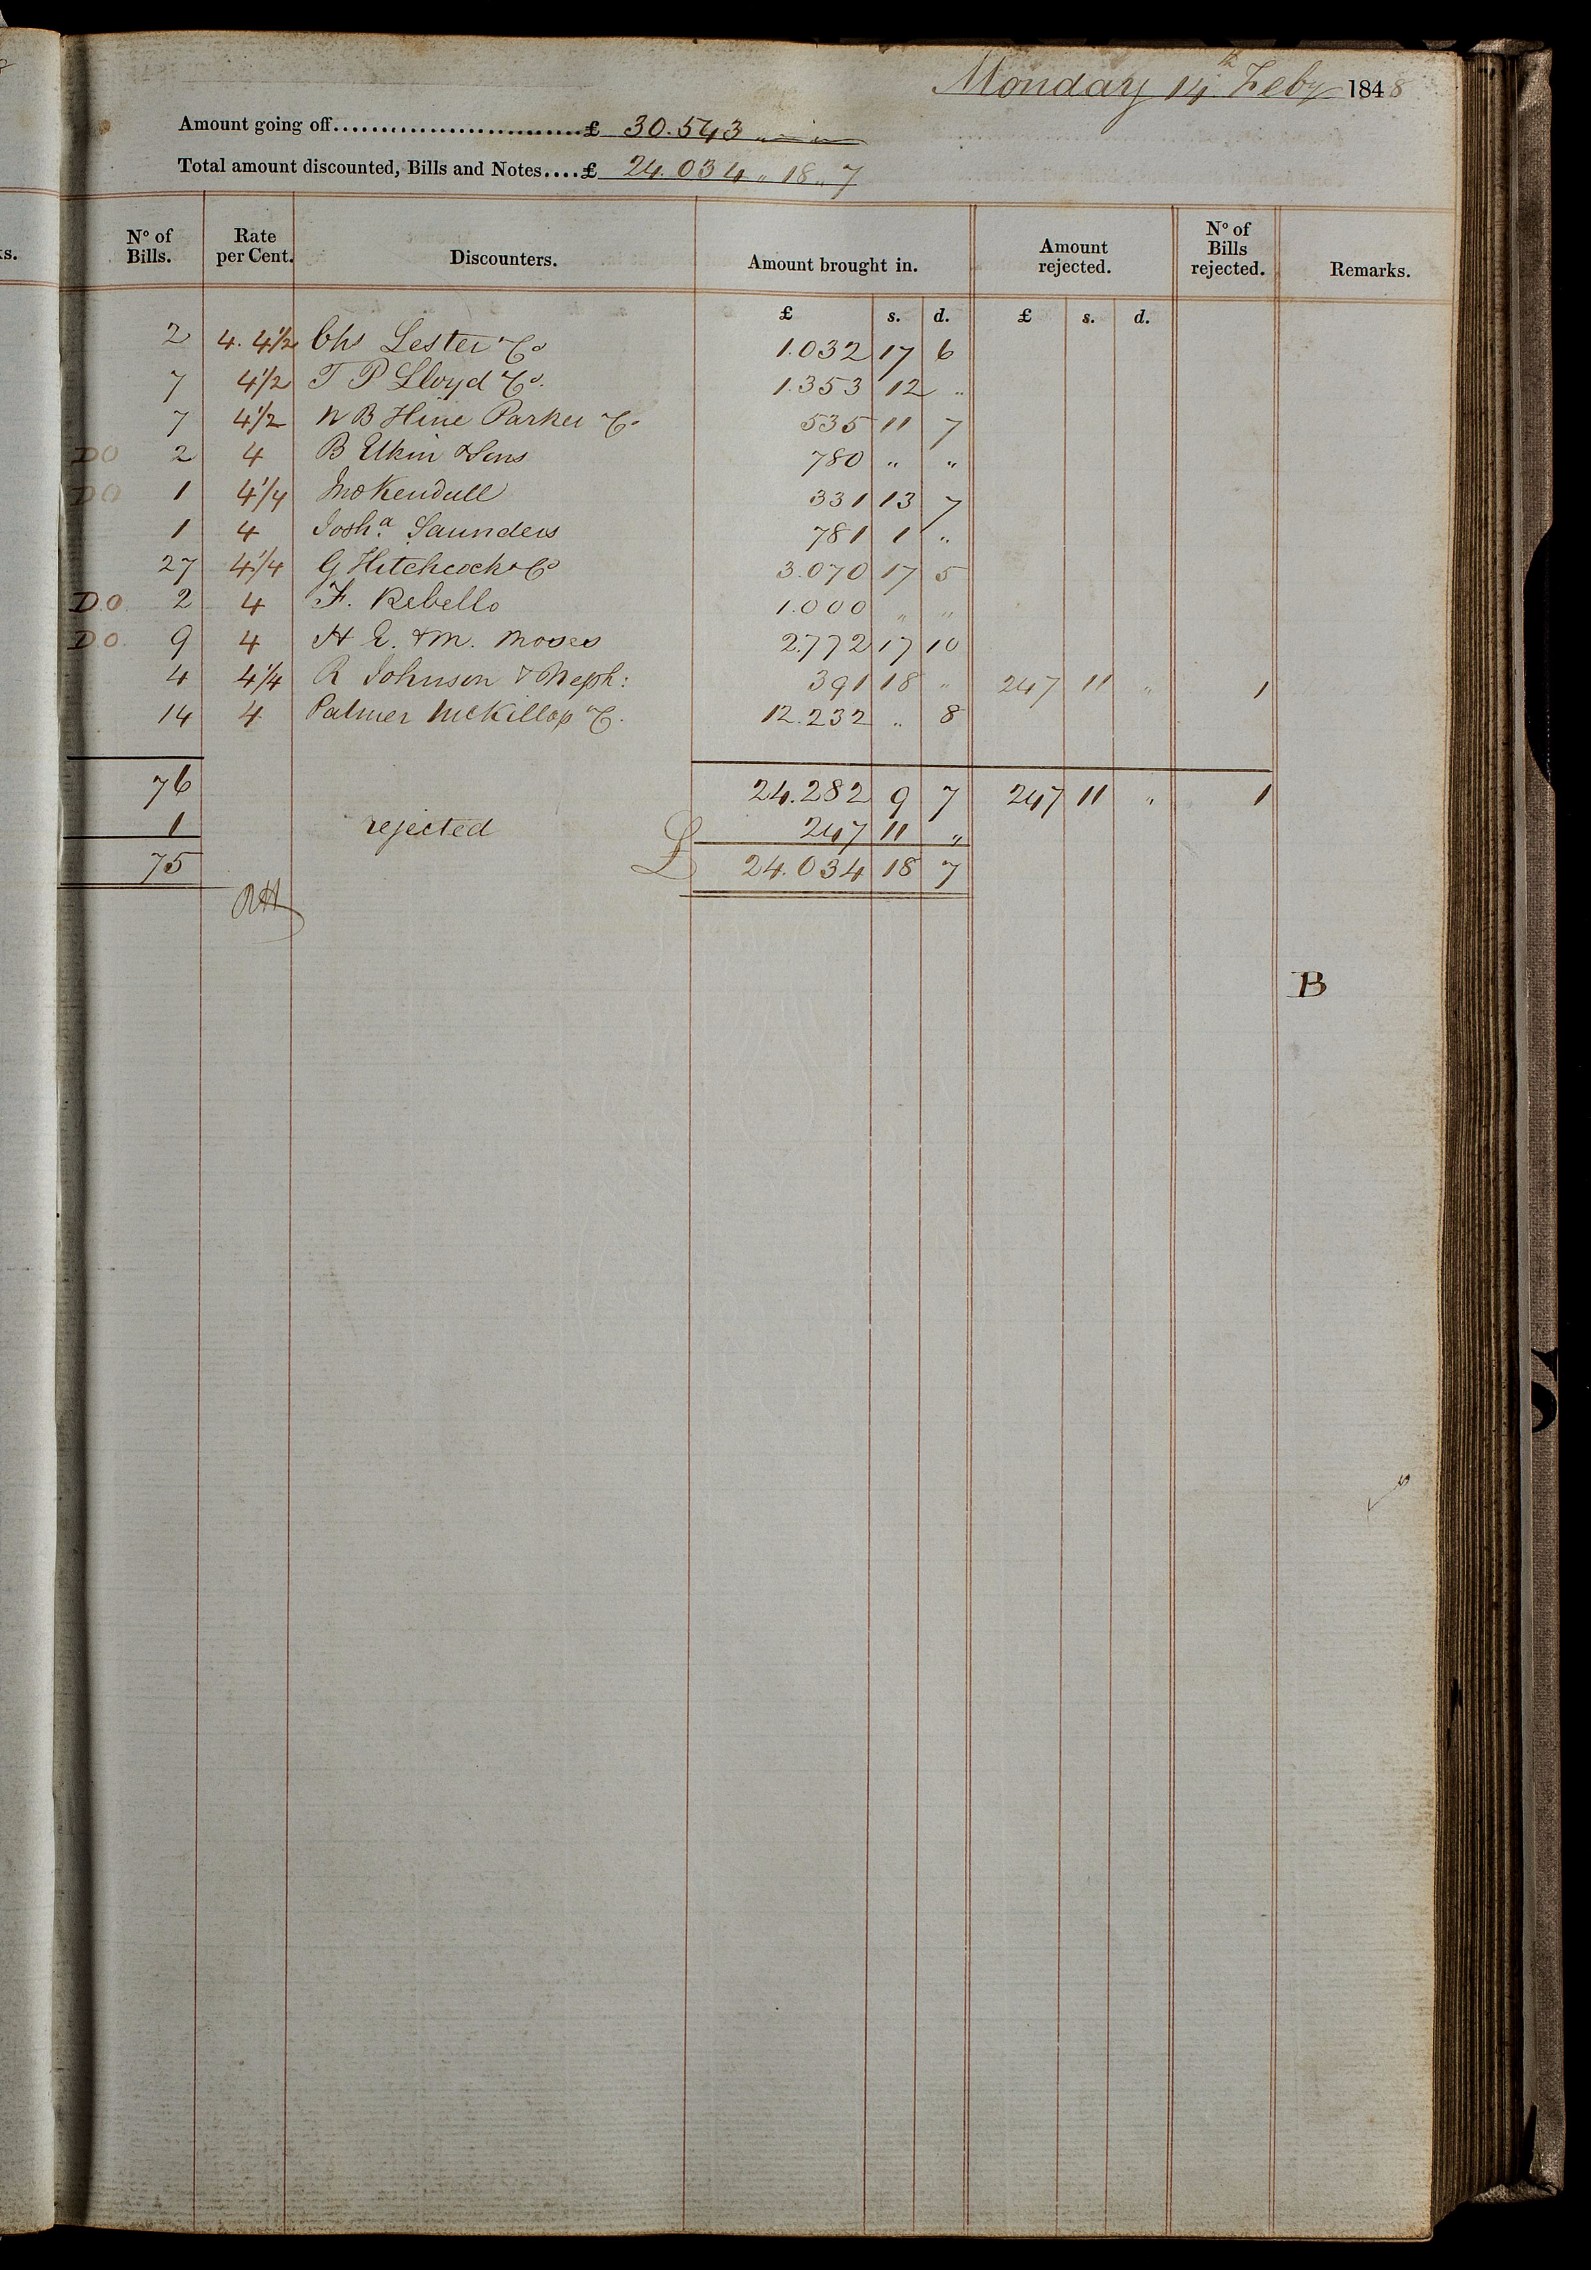 Monday 14th Feby 1848
Amount going off...........................£ 30.543 „ — „ —
Total amount discounted, Bills and Notes....£ 24.034 „ 18 „ 7
ks. No of Bills. Rate per Cent. Discounters. Amount brought in. Amount rejected. No of Bills rejected. Remarks.
£ s. d. £ s. d.
2 4. 4½ Chs Lester & Co 1.032 17 6
7 4½ T P Lloyd & Co. 1.353 12 „
7 4½ W B Hine Parker & Co 535 11 7
DO 2 4 B Elkin & Sons 780 „ „
DO 1 4¼ Jno Kendall 331 13 7
1 4 Josha Saunders 781 1 „
27 4¼ G Hitchcock & Co 3.070 17 5
D.O. 2 4 F. Rebello 1.000 „ „
DO. 9 4 H E. & M. Moses 2.772 17 10
4 4¼ R Johnson & Neph: 391 18 „ 247 11 „ 1
14 4 Palmer McKillop & Co. 12.232 „ 8
76 24.282 9 7 247 11 „ 1
1 rejected 247 11 „
75 £ 24.034 18 7
RH
B